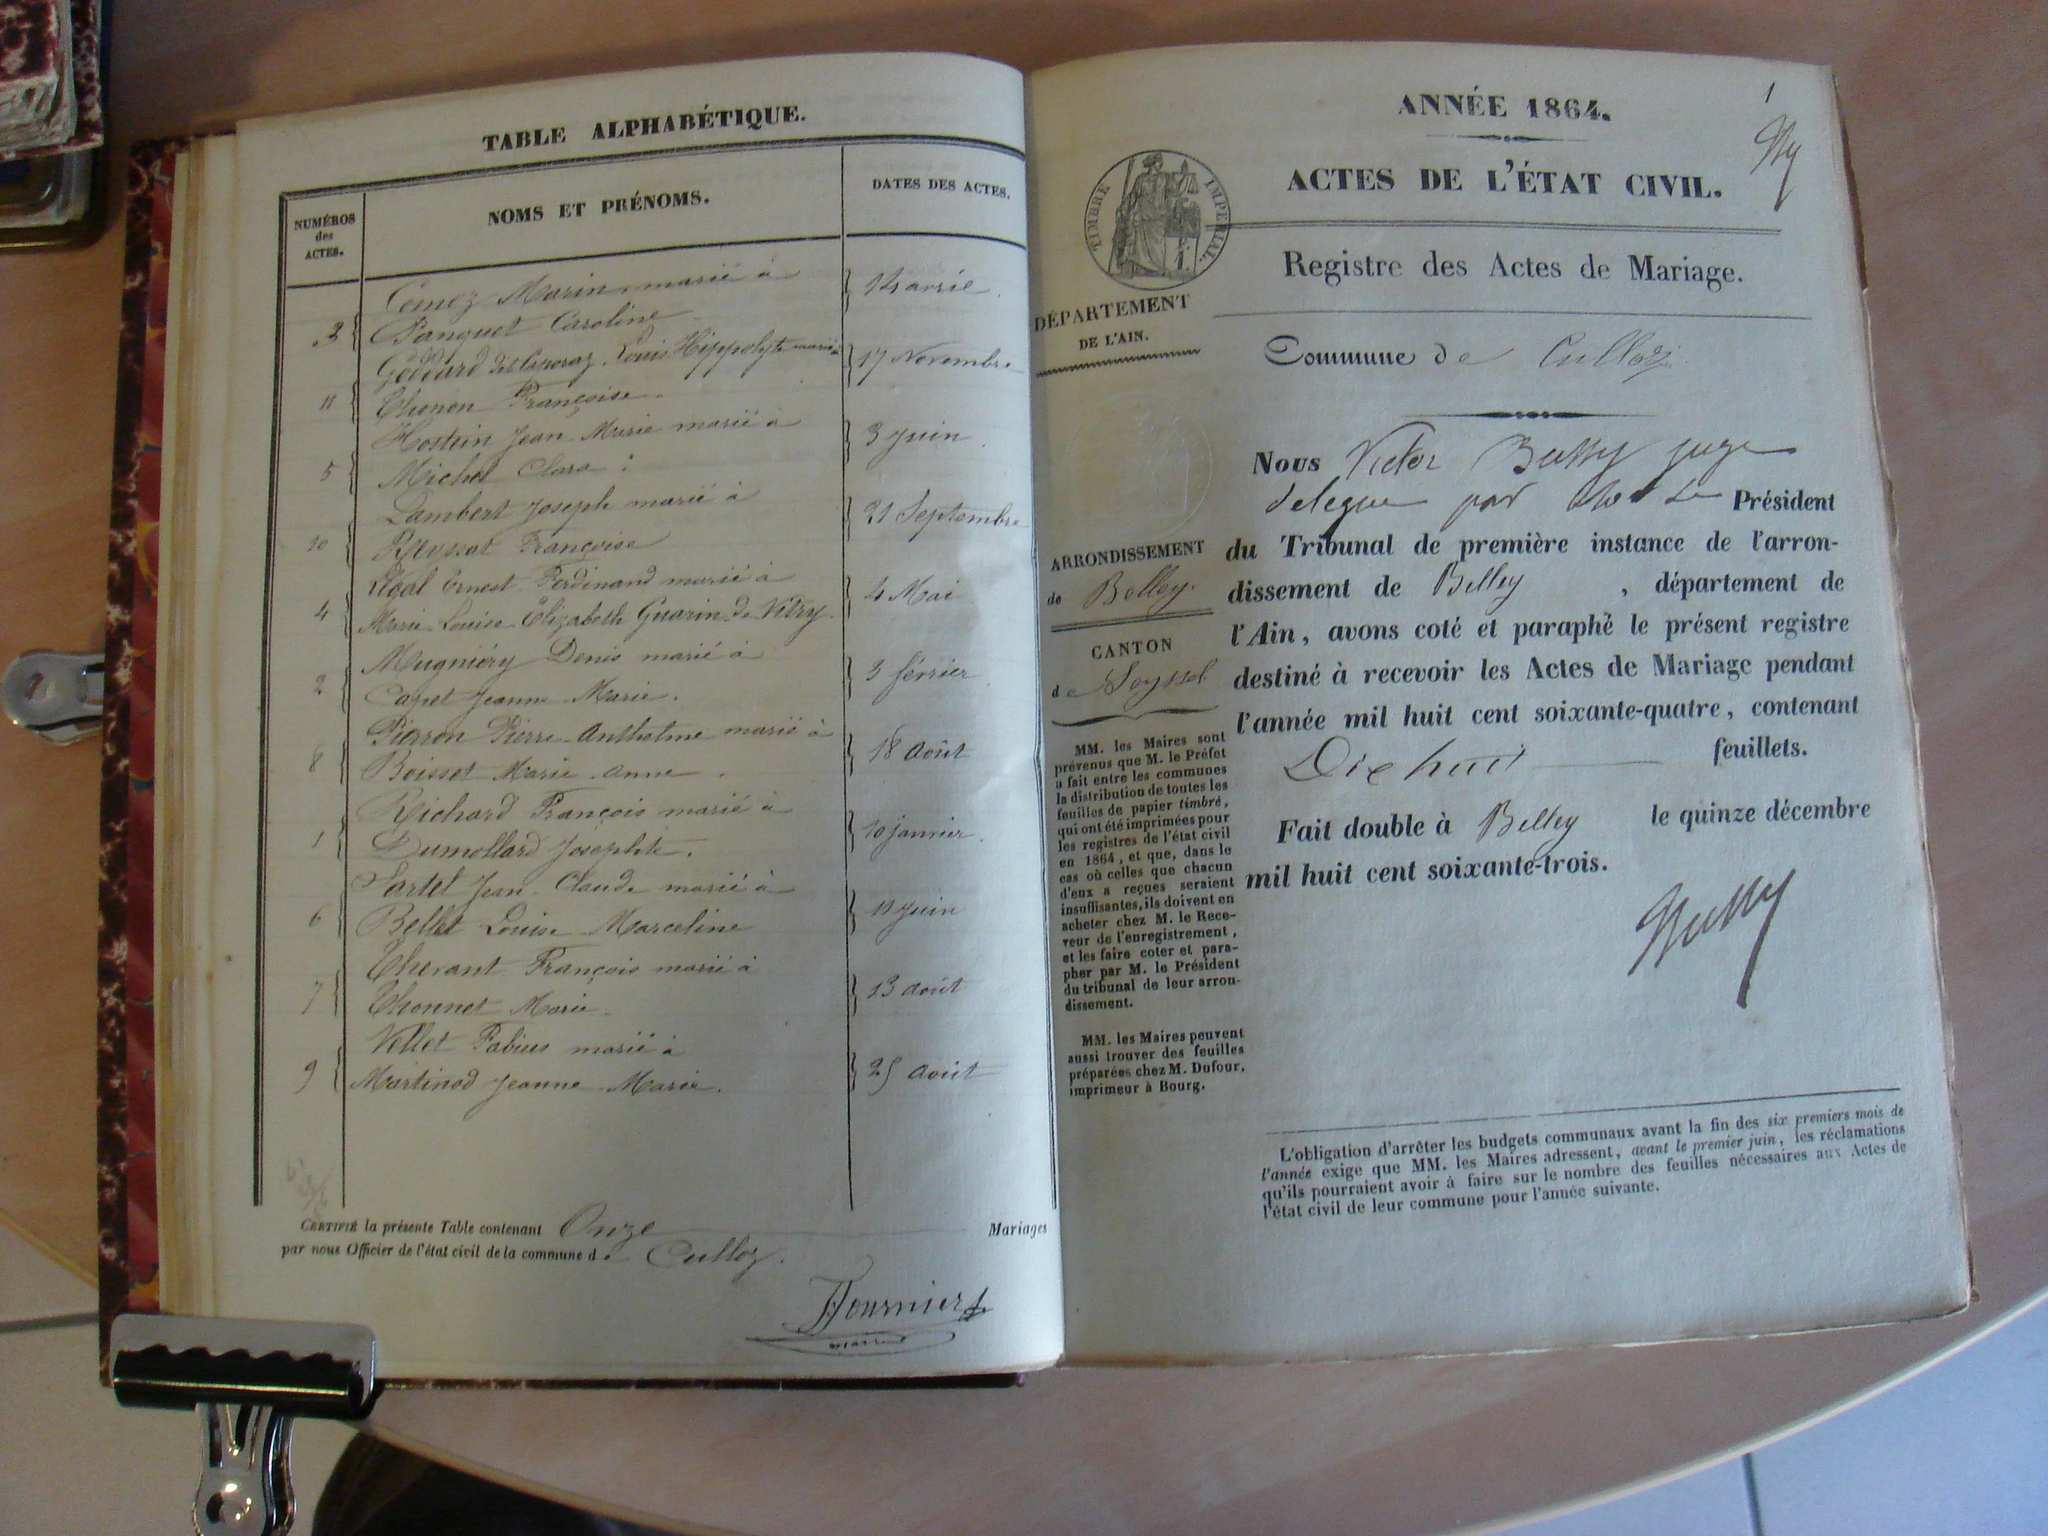 TABLE ALPHABÉTIQUE.
NUMÉROS
des
ACTES.
NOMS ET PRÉNOMS.
DATES DES ACTES.
Cemoz Marin marié à
14 avril
3 Panquet Caroline
Goddard Louis Hippolyte marié à
17 Novembre
11 Thonon Françoise
Hostein Jean Marie marié à
3 Juin
5 Michel Clara
Lambert Joseph marié à
21 Septembre
10 Reyssat Françoise
Ernest Ferdinand marié à
4 Mai
4 Marie Louise Elizabeth Guarin de Vitry
Mugniéry Denis marié à
3 février
2 Capet Jeanne Marie.
Pierre Anthelme marié à
18 août
8 Boisset Marie Anne
Richard François marié à
10 janvier
1 Dumollard Josephte.
Sartel Jean Claude marié à
Juin
6 Bellet Louise Marceline
Thevant François marié à
13 août
7 Thonnet Marie
Vellet Fabius marié à
25 août
9 Martinod Jeanne Marie.
CERTIFIÉ la présente Table contenant Onze Mariages
par nous Officier de l'état civil de la commune de Culloz.
Fournier
1
ANNÉE 1864.
ACTES DE L'ÉTAT CIVIL.
TIMBRE IMPÉRIAL.
Registre des Actes de Mariage.
DÉPARTEMENT
DE L'AIN.
Commune de Culloz
Nous Victor Bussy juge
délégué par le Président
du Tribunal de première instance de l'arron-
dissement de Belley, département de
l'Ain, avons coté et paraphé le présent registre
destiné à recevoir les Actes de Mariage pendant
l'année mil huit cent soixante-quatre, contenant
Dix huit feuillets.
Fait double à Belley le quinze décembre
mil huit cent soixante-trois.
ARRONDISSEMENT
de Belley.
CANTON
de Seyssel
MM. les Maires sont
prévenus que M. le Préfet
a fait entre les communes
la distribution de toutes les
feuilles de papier timbré,
qui ont été imprimées pour
les registres de l'état civil
en 1864, et que, dans le
cas où celles que chacun
d'eux a reçues seraient
insuffisantes, ils doivent en
acheter chez M. le Rece-
veur de l'enregistrement,
et les faire coter et para-
pher par M. le Président
du tribunal de leur arron-
dissement.
MM. les Maires peuvent
aussi trouver des feuilles
préparées chez M. Dufour,
imprimeur à Bourg.
L'obligation d'arrêter les budgets communaux avant la fin des six premiers mois de
l'année exige que MM. les Maires adressent, avant le premier juin, les réclamations
qu'ils pourraient avoir à faire sur le nombre des feuilles nécessaires aux Actes de
l'état civil de leur commune pour l'année suivante.